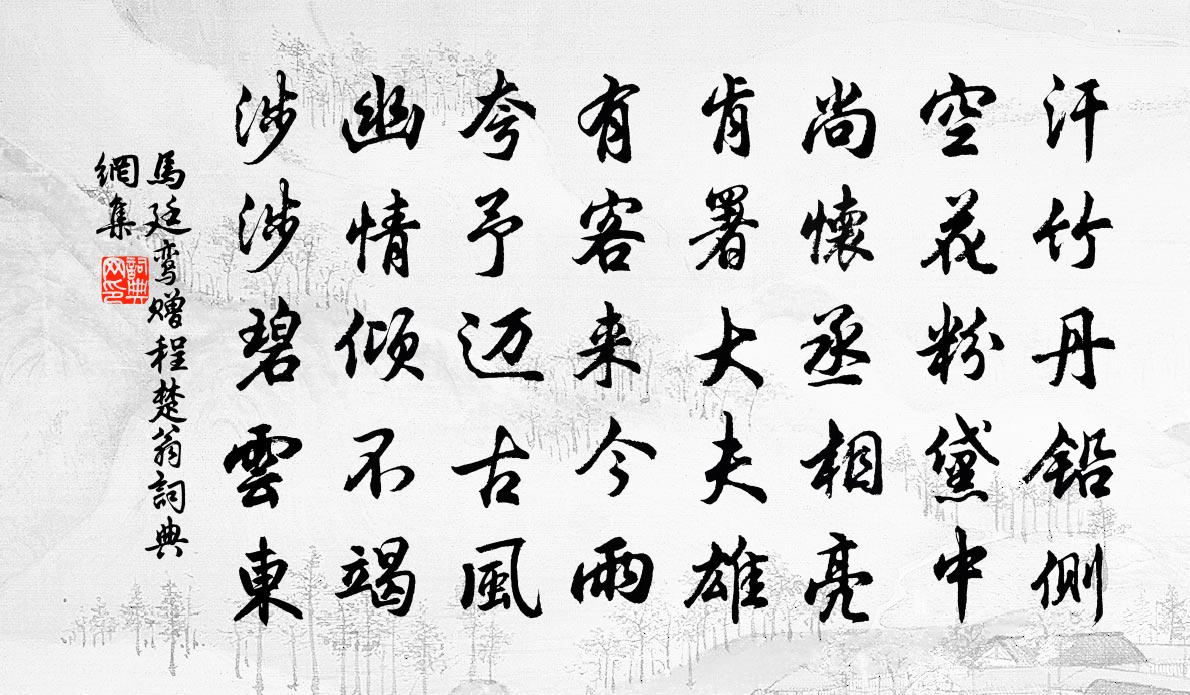 汗竹丹鉛側
空花粉黛中
尚懷丞相亮
肯署大夫雄
有客来今雨
夸予迈古風
幽情倾不竭
涉涉碧雲東
馬廷鸾赠程楚翁詞典
網集
詞典
网印